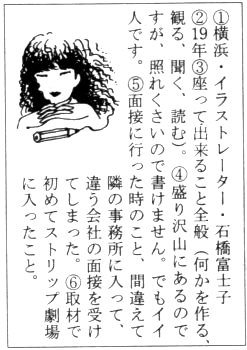 ①横浜・イラストレーター・石橋富士子
②19年③座って出来ること全般（何かを作る、
観る、聞く、読む）。④盛り沢山にあるので
すが、照れくさいので書けません。でもイイ
人です。⑤面接に行った時のこと、間違えて
隣の事務所に入って、
違う会社の面接を受け
てしまった。⑥取材で
初めてストリップ劇場
に入ったこと。